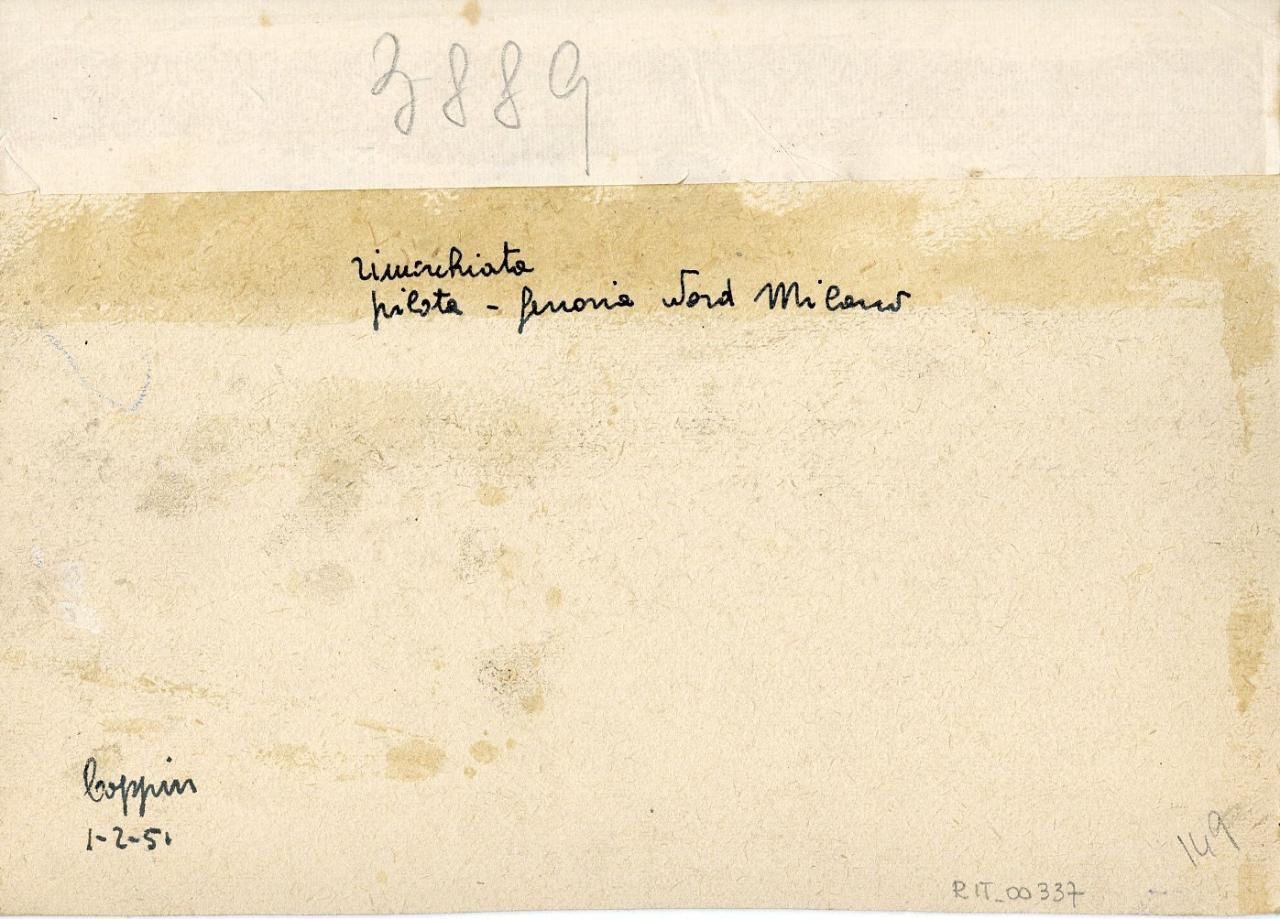 3889
rimorchiata
pilota - ferrovia Nord Milano
Coppin
1-2-51
149
RIT_00337